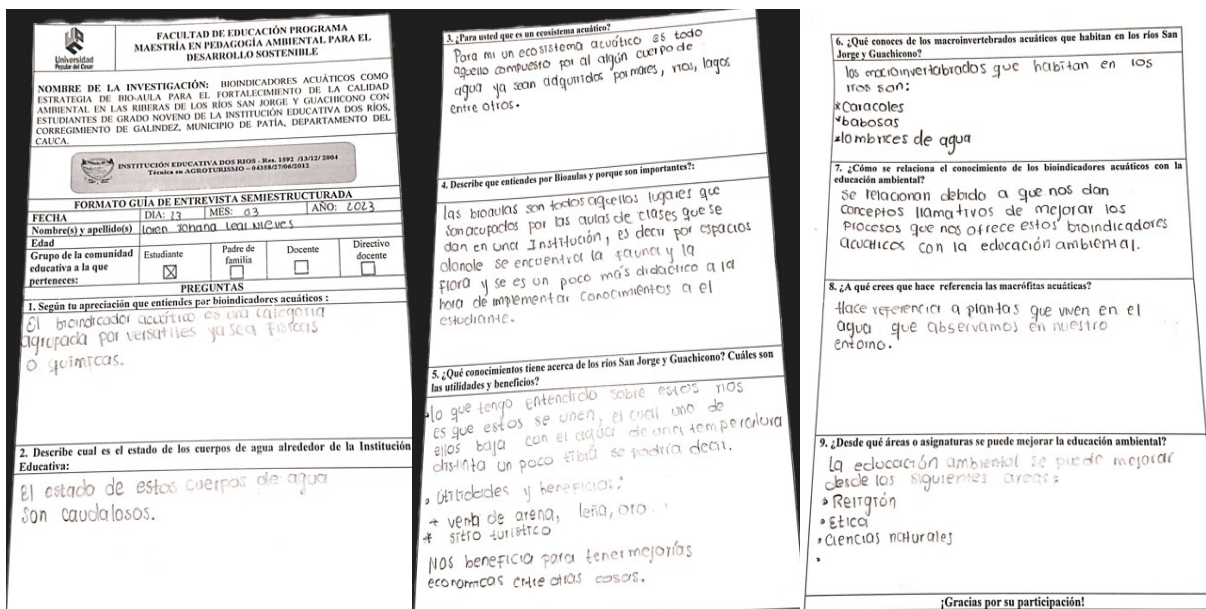 Universidad
Popular del Cesar
FACULTAD DE EDUCACIÓN PROGRAMA
MAESTRÍA EN PEDAGOGÍA AMBIENTAL PARA EL
DESARROLLO SOSTENIBLE
NOMBRE DE LA INVESTIGACIÓN: BIOINDICADORES ACUÁTICOS COMO
ESTRATEGIA DE BIO-AULA PARA EL FORTALECIMIENTO DE LA CALIDAD
AMBIENTAL EN LAS RIBERAS DE LOS RÍOS SAN JORGE Y GUACHICONO CON
ESTUDIANTES DE GRADO NOVENO DE LA INSTITUCIÓN EDUCATIVA DOS RÍOS,
CORREGIMIENTO DE GALINDEZ, MUNICIPIO DE PATÍA, DEPARTAMENTO DEL
CAUCA.
INSTITUCIÓN EDUCATIVA DOS RIOS - Res. 1592 /13/12/ 2004
Técnica en AGROTURISMO – 04358/27/06/2012
FORMATO GUÍA DE ENTREVISTA SEMIESTRUCTURADA
FECHA DIA: 23 MES: 03 AÑO: 2023
Nombre(s) y apellido(s) Loren Johana Leal Nieves
Edad
Grupo de la comunidad educativa a la que perteneces: Estudiante Padre de familia Docente Directivo docente
PREGUNTAS
1. Según tu apreciación que entiendes por bioindicadores acuáticos :
El bioindicador acuático es una categoria
agrupada por versatiles ya sea Fisicas
o quimicas.
2. Describe cual es el estado de los cuerpos de agua alrededor de la Institución
Educativa:
El estado de estos cuerpos de agua
son caudalosos.
3. ¿Para usted que es un ecosistema acuático?
Para mi un ecosistema acuático es todo
aquello compuesto por al algún cuerpo de
agua ya sean adquiridos por mares, rios, lagos
entre otros.
4. Describe que entiendes por Bioaulas y porque son importantes?:
las bioaulas son todos aquellos lugares que
son acupados por las aulas de clases que se
dan en una Institución, es decir por espacios
donde se encuentra la fauna y la
flora y se es un poco más didáctico a la
hora de implementar conocimientos a el
estudiante.
5. ¿Qué conocimientos tiene acerca de los ríos San Jorge y Guachicono? Cuáles son
las utilidades y beneficios?
lo que tengo entendido sobre estos rios
es que estos se unen, el cual uno de
ellos baja con el agua de una temperatura
distinta un poco tibia se podría decir.
• Utilidades y beneficios:
* venta de arena, leña, oro.
* sitio turistico
Nos beneficia para tener mejorías
economicas entre otras cosas.
6. ¿Qué conoces de los macroinvertebrados acuáticos que habitan en los ríos San
Jorge y Guachicono?
los macroinvertabrados que habitan en los
rios son:
*Caracoles
*babosas
*lombrices de agua
7. ¿Cómo se relaciona el conocimiento de los bioindicadores acuáticos con la
educación ambiental?
Se relacionan debido a que nos dan
conceptos llamativos de mejorar los
procesos que nos ofrece estos bioindicadores
acuaticos con la educación ambiental.
8. ¿A qué crees que hace referencia las macrófitas acuáticas?
Hace referencia a plantas que viven en el
agua que observamos en nuestro
entorno.
9. ¿Desde qué áreas o asignaturas se puede mejorar la educación ambiental?
La educación ambiental se puede mejorar
desde las siguientes areas:
• Religión
• Etica
• Ciencias naturales
•
¡Gracias por su participación!